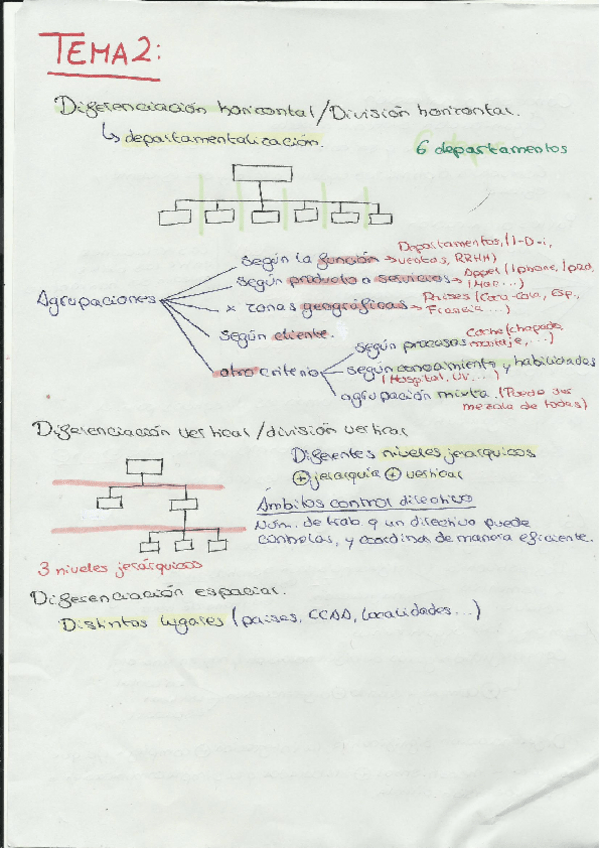 TEMA 2:
Diferenciación horizontal/División horizontal.
↳ departamentalización.
6 departamentos
Agrupaciones
según la función → Departamentos, (I-D-i, ventas, RRHH)
según producto o servicios → Appel (Iphone, Ipad, Mac...)
x zonas geográficas → Países (Coca-Cola, Esp., Francia...)
según cliente.
otro criterio
según procesos Coche (chapado, montaje, ...)
según conocimiento y habilidades
(Hospital, UV...)
agrupación mixta. (Puede ser mezcla de todas)
Diferenciación vertical/división vertical
Diferentes niveles jerárquicos
+ jerarquía + vertical
Ámbitos control directivo
Núm. de trab q un directivo puede
controlar, y coordinar de manera eficiente.
3 niveles jerárquicos
Diferenciación espacial.
Distintos lugares (países, CCAA, localidades...)